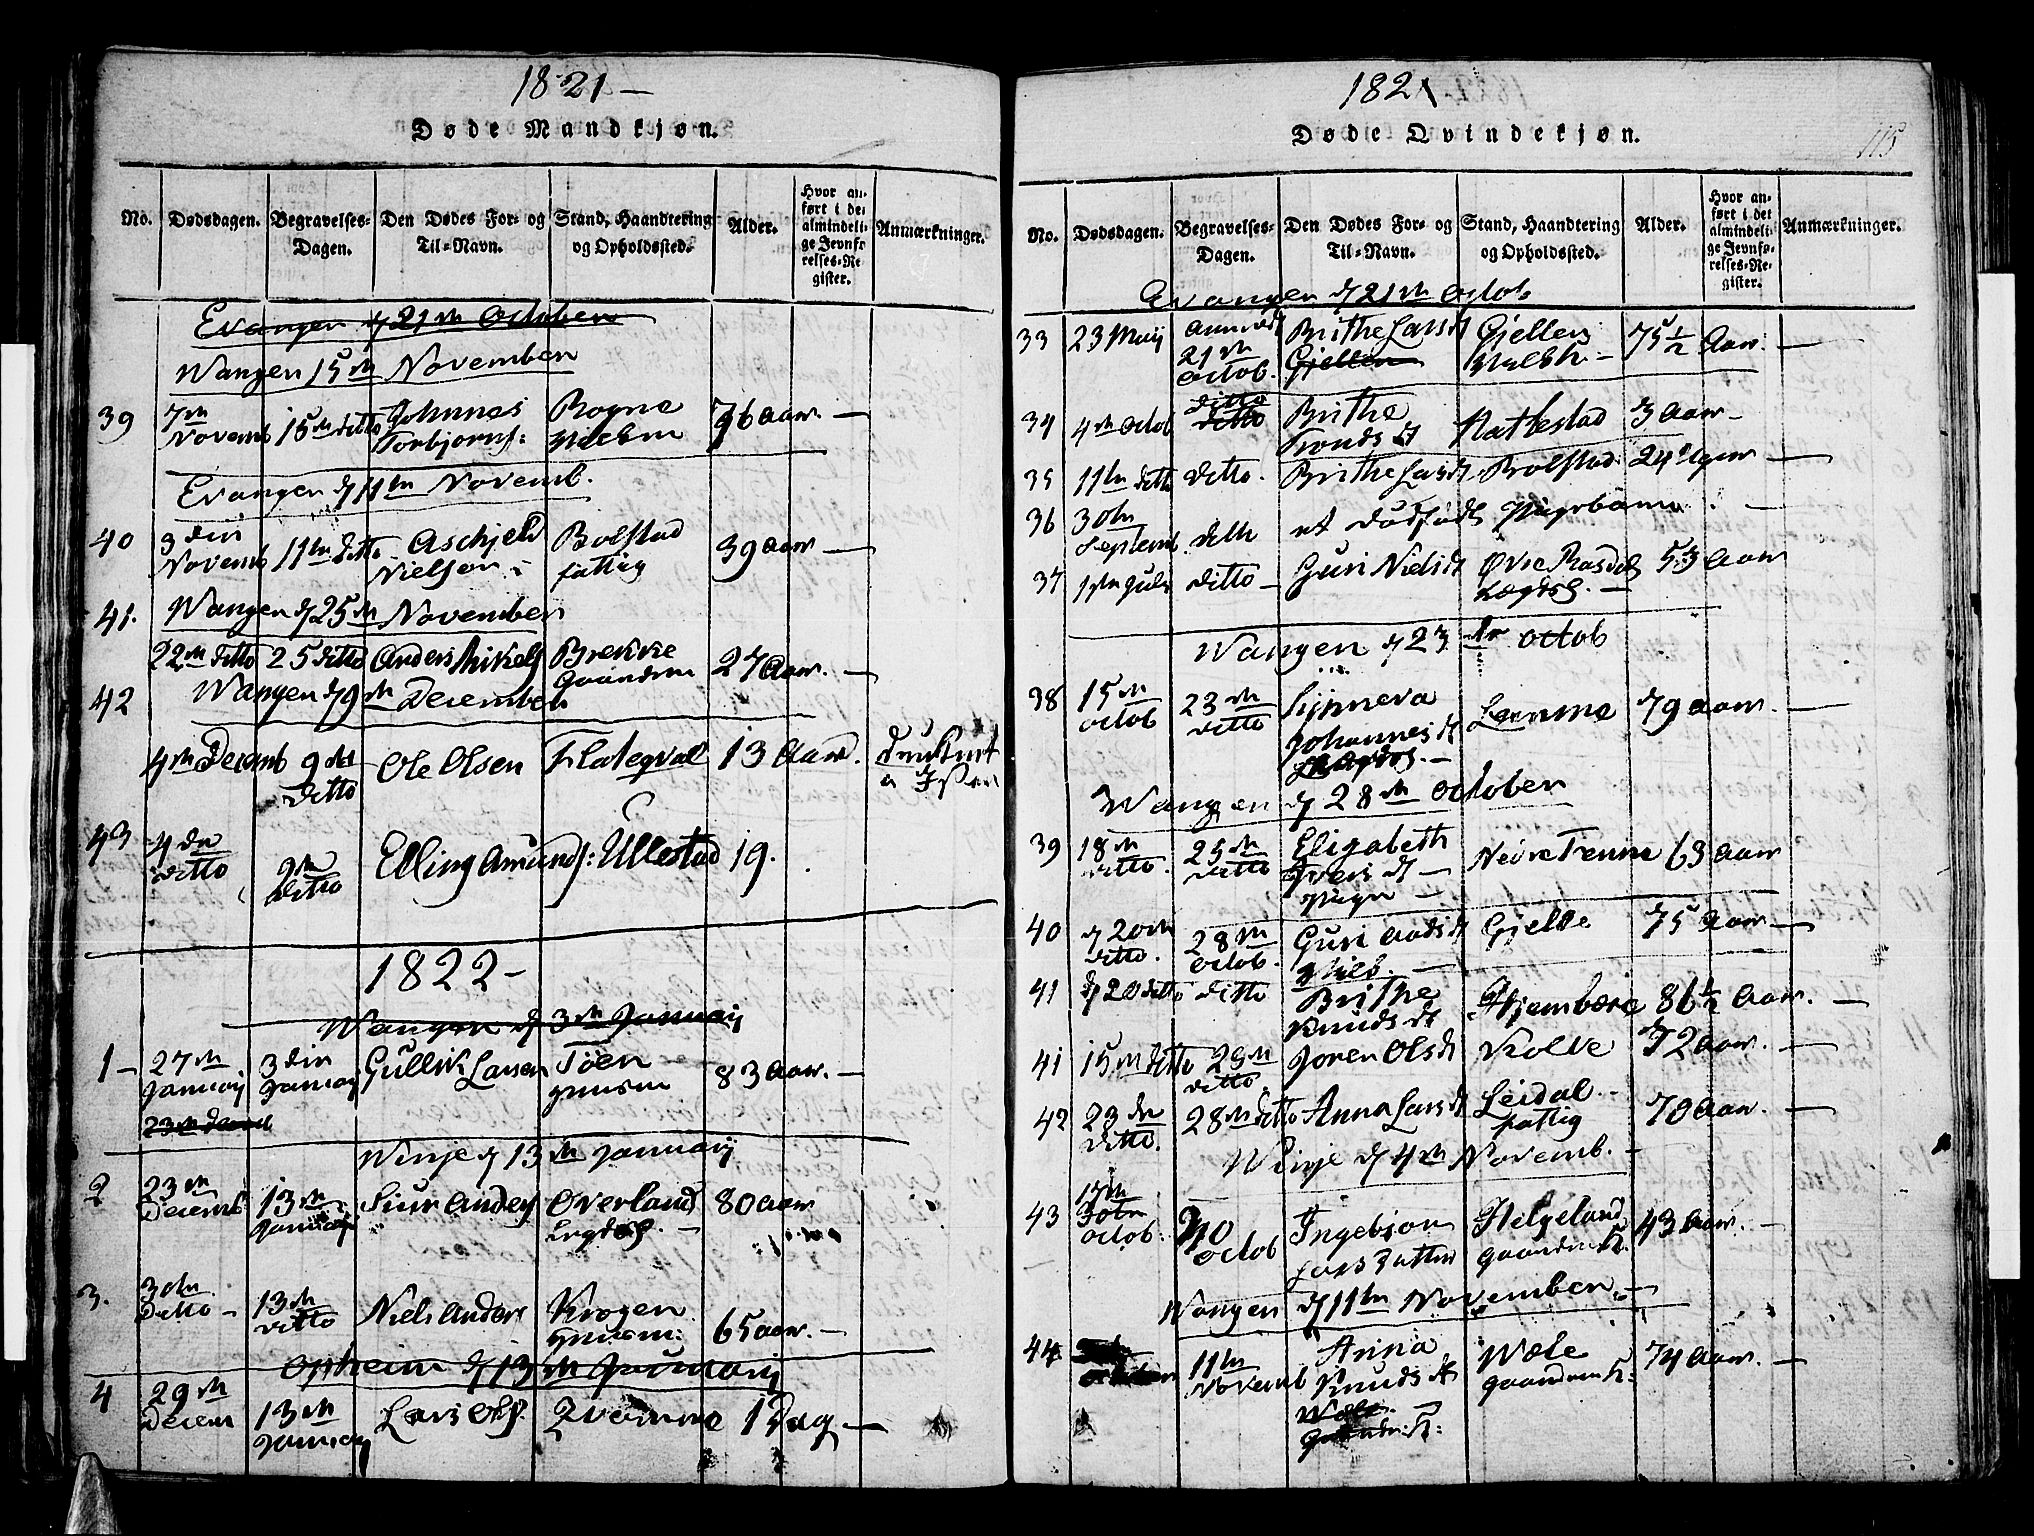 1821 —
Døde Mandkjøn.
No.
Dødsdagen.
Begravelses-
Dagen.
Den Dødes For- og
Til-Navn.
Stand, Haandtering
og Opholdssted.
Alder.
Hvor an-
ført i det
almindeli-
ge Jevnfø-
relses-Re-
gister.
Anmærkninger.
Evanger d 21de October
Wangen 15de November
39 7de Novemb 15de ditto Johnnes Torbjørns: Rogne 76 Aar —
Evanger d 11te Novemb.
40 3die Novemb 11te ditto Aschjeld Nielsen Bolstad fattig 39 Aar —
41. Wangen d 25de November
22de ditto 25 ditto Anders Mikels Brekke Gaardm 27 Aar —
42 Wangen d 9de December
4de Decemb 9de ditto Ole Olsen Flateqval 13 Aar. druknet
43 4de ditto 9de ditto Elling Amunds: Ullestad 19.
1822 —
Wangen d 3de Januarij
1 — 27de Januarij 3die Januarij Gullik Larsen Tøen 83 Aar. —
Winje d 13de Januarij
2 23de Decemb 13de Januarij Siur Anders Øverland Lægds 80 Aar
3. 30te Ditto — 13de ditto Niels Anders Krogen 65 Aar. —
Opheim d 13de Januarij
4 29de Decem 13de Januarij Lars Ols 1 Dag —
1821
115
Døde Qvindekjøn.
No.
Dødsdagen.
Begravelses-
Dagen.
Den Dødes For- og
Til-Navn.
Stand, Haandtering
og Opholdssted.
Alder.
Hvor an-
ført i det
almindeli-
ge Jevnfø-
relses-Re-
gister.
Anmærkninger.
Evanger d 21de Octob
33 23 Maij 21de Octob. Brithe Larsd Gjellen Gjelle 75 1/2 Aar. —
34 4de Octob ditto Brithe Tronds d Rattestad 3 Aar —
35 11te ditto ditto. Brithe Larsd Bolstad 24 Uger —
36 30te Septemb ditto et dødfødt Pigebarn —
37 ditto — Guri Niels d Øvre Rasdal Lægds. — 53 Aar
Wangen d 23de Octob
38 15de Octob 23de ditto Sijnneva Johannes d Lægds. — Lemme 79 Aar. —
Wangen d 28de October
39 18de ditto. 25de ditto Elizabeth Iversd — Pige — Nedre Tenne 63 Aar
40 d 20de ditto. 28de Octob. Guri Aadsd Gjelle 75 Aar —
41 d 20 ditto ditto Brithe Knuds d Hjembære 86 1/2 Aar. —
41 15de ditto 29de ditto. Joren Olsd Kolve 72 Aar. —
42 23de ditto. 28de ditto Anna Larsd Leidal fattig 70 Aar. —
Winje d 4de Novemb. —
43 30te Octob. Octob Ingebjør Lars Datter Helgeland 43 Aar. —
Wangen d 11te November. —
44 11te Novemb Anna Knuds d Wæle Wæle 74 Aar. —